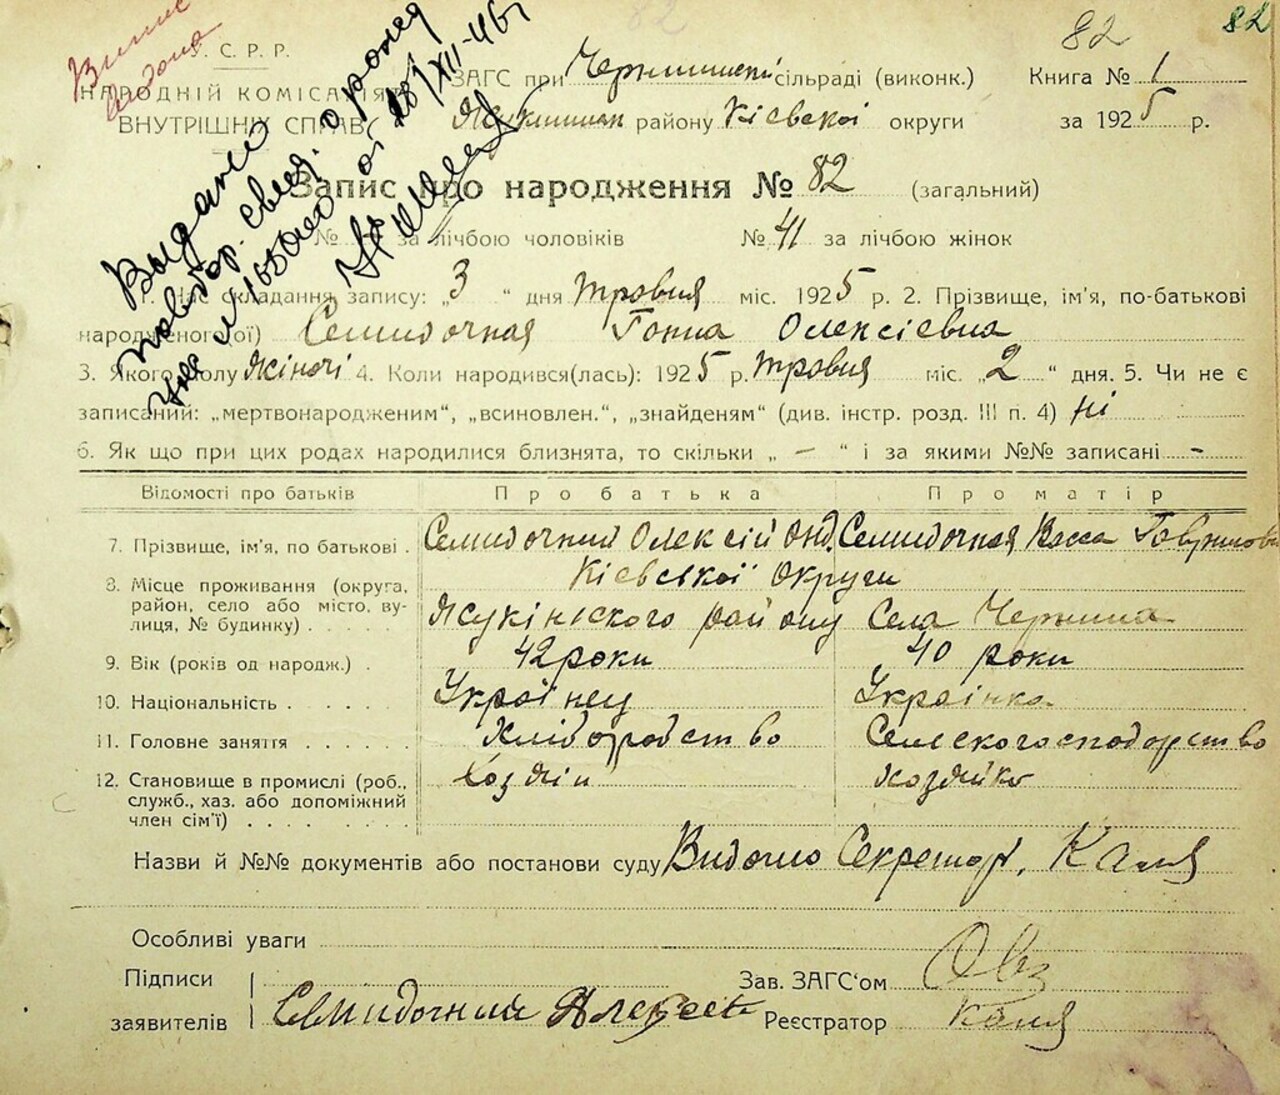 82 82
Випис
У. С. Р. Р.
НАРОДНІЙ КОМІСАРІЯТ
ВНУТРІШНІХ СПРАВ
ЗАГС при сільраді (виконк.) Книга № 1
району Кіевскої округи за 1925 р.
Виданий
повтор. свид. о рожд
Запис про народження № 82 (загальний)
№ за лічбою чоловіків № 41 за лічбою жінок
1. Час складання запису: „3“ дня травня міс. 1925 р. 2. Прізвище, ім'я, по-батькові
народженого(ої) Семидочная Ганна Олексієвна
3. Якого полу жіночі 4. Коли народився(лась): 1925 р. травня міс. „2“ дня. 5. Чи не є
записаний: „мертвонародженим“, „всиновлен.“, „знайденям“ (див. інстр. розд. III п. 4) ні
6. Як що при цих родах народилися близнята, то скільки „ – “ і за якими №№ записані -
Відомості про батьків Про батька Про матір
7. Прізвище, ім'я, по батькові . Семидочний Олексій Онд. Семидочная Васса
8. Місце проживання (округа, Кієвської округи
район, село або місто, ву-
лиця, № будинку) . . . . . району Села
9. Вік (років од народж.) . 42 роки 40 роки
10. Національність . . . . . . Українец Українка.
11. Головне заняття . . . . . . Хліборобство Селскогосподорство
12. Становище в промислі (роб., Хозяїн хозяйка
служб., хаз. або допоміжний
член сім'ї) . . . . . . . .
Назви й №№ документів або постанови суду Видомо Секретар, Каля
Особливі уваги
Підписи Зав. ЗАГС'ом
заявителів Семидочний Алексей Реєстратор Каля